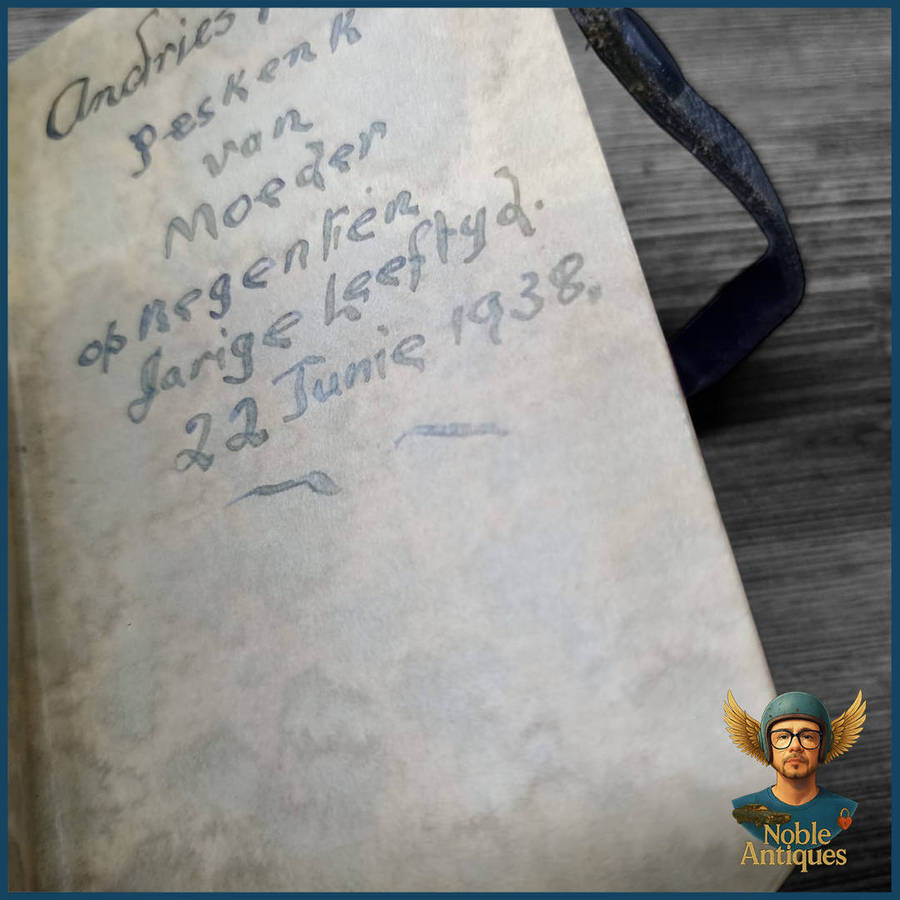 Andries
geskenk
van
Moeder
op negentien
Jarige leeftyd.
22 Junie 1938.
Noble
Antiques